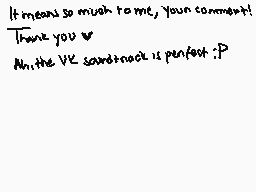 It means so much to me, your comment!
Thank you ♥
Ah, the VK soundtrack is perfect :P